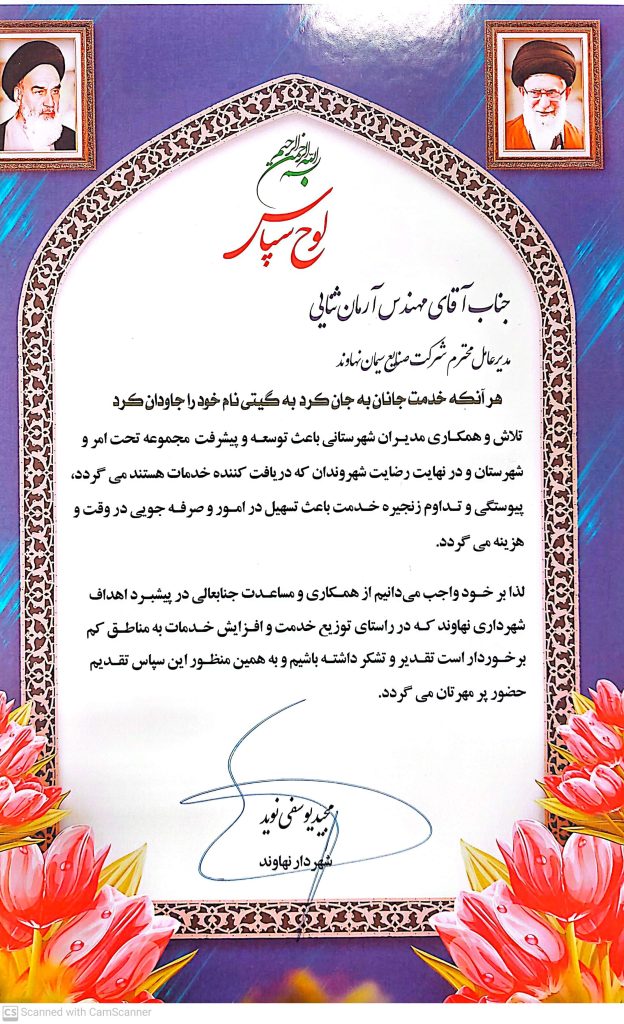 بسم الله الرحمن الرحیم
لوح سپاس
جناب آقای مهندس آرمان ثنایی
مدیرعامل محترم شرکت صنایع سیمان نهاوند
هر آنکه خدمت جانان به جان کرد به گیتی نام خود را جاودان کرد
تلاش و همکاری مدیران شهرستانی باعث توسعه و پیشرفت مجموعه تحت امر و
شهرستان و در نهایت رضایت شهروندان که دریافت کننده خدمات هستند می گردد،
پیوستگی و تداوم زنجیره خدمت باعث تسهیل در امور و صرفه جویی در وقت و
هزینه می گردد.
لذا بر خود واجب می‌دانیم از همکاری و مساعدت جنابعالی در پیشبرد اهداف
شهرداری نهاوند که در راستای توزیع خدمت و افزایش خدمات به مناطق کم
برخوردار است تقدیر و تشکر داشته باشیم و به همین منظور این سپاس تقدیم
حضور پر مهرتان می گردد.
مجید یوسفی نوید
شهردار نهاوند
CS Scanned with CamScanner